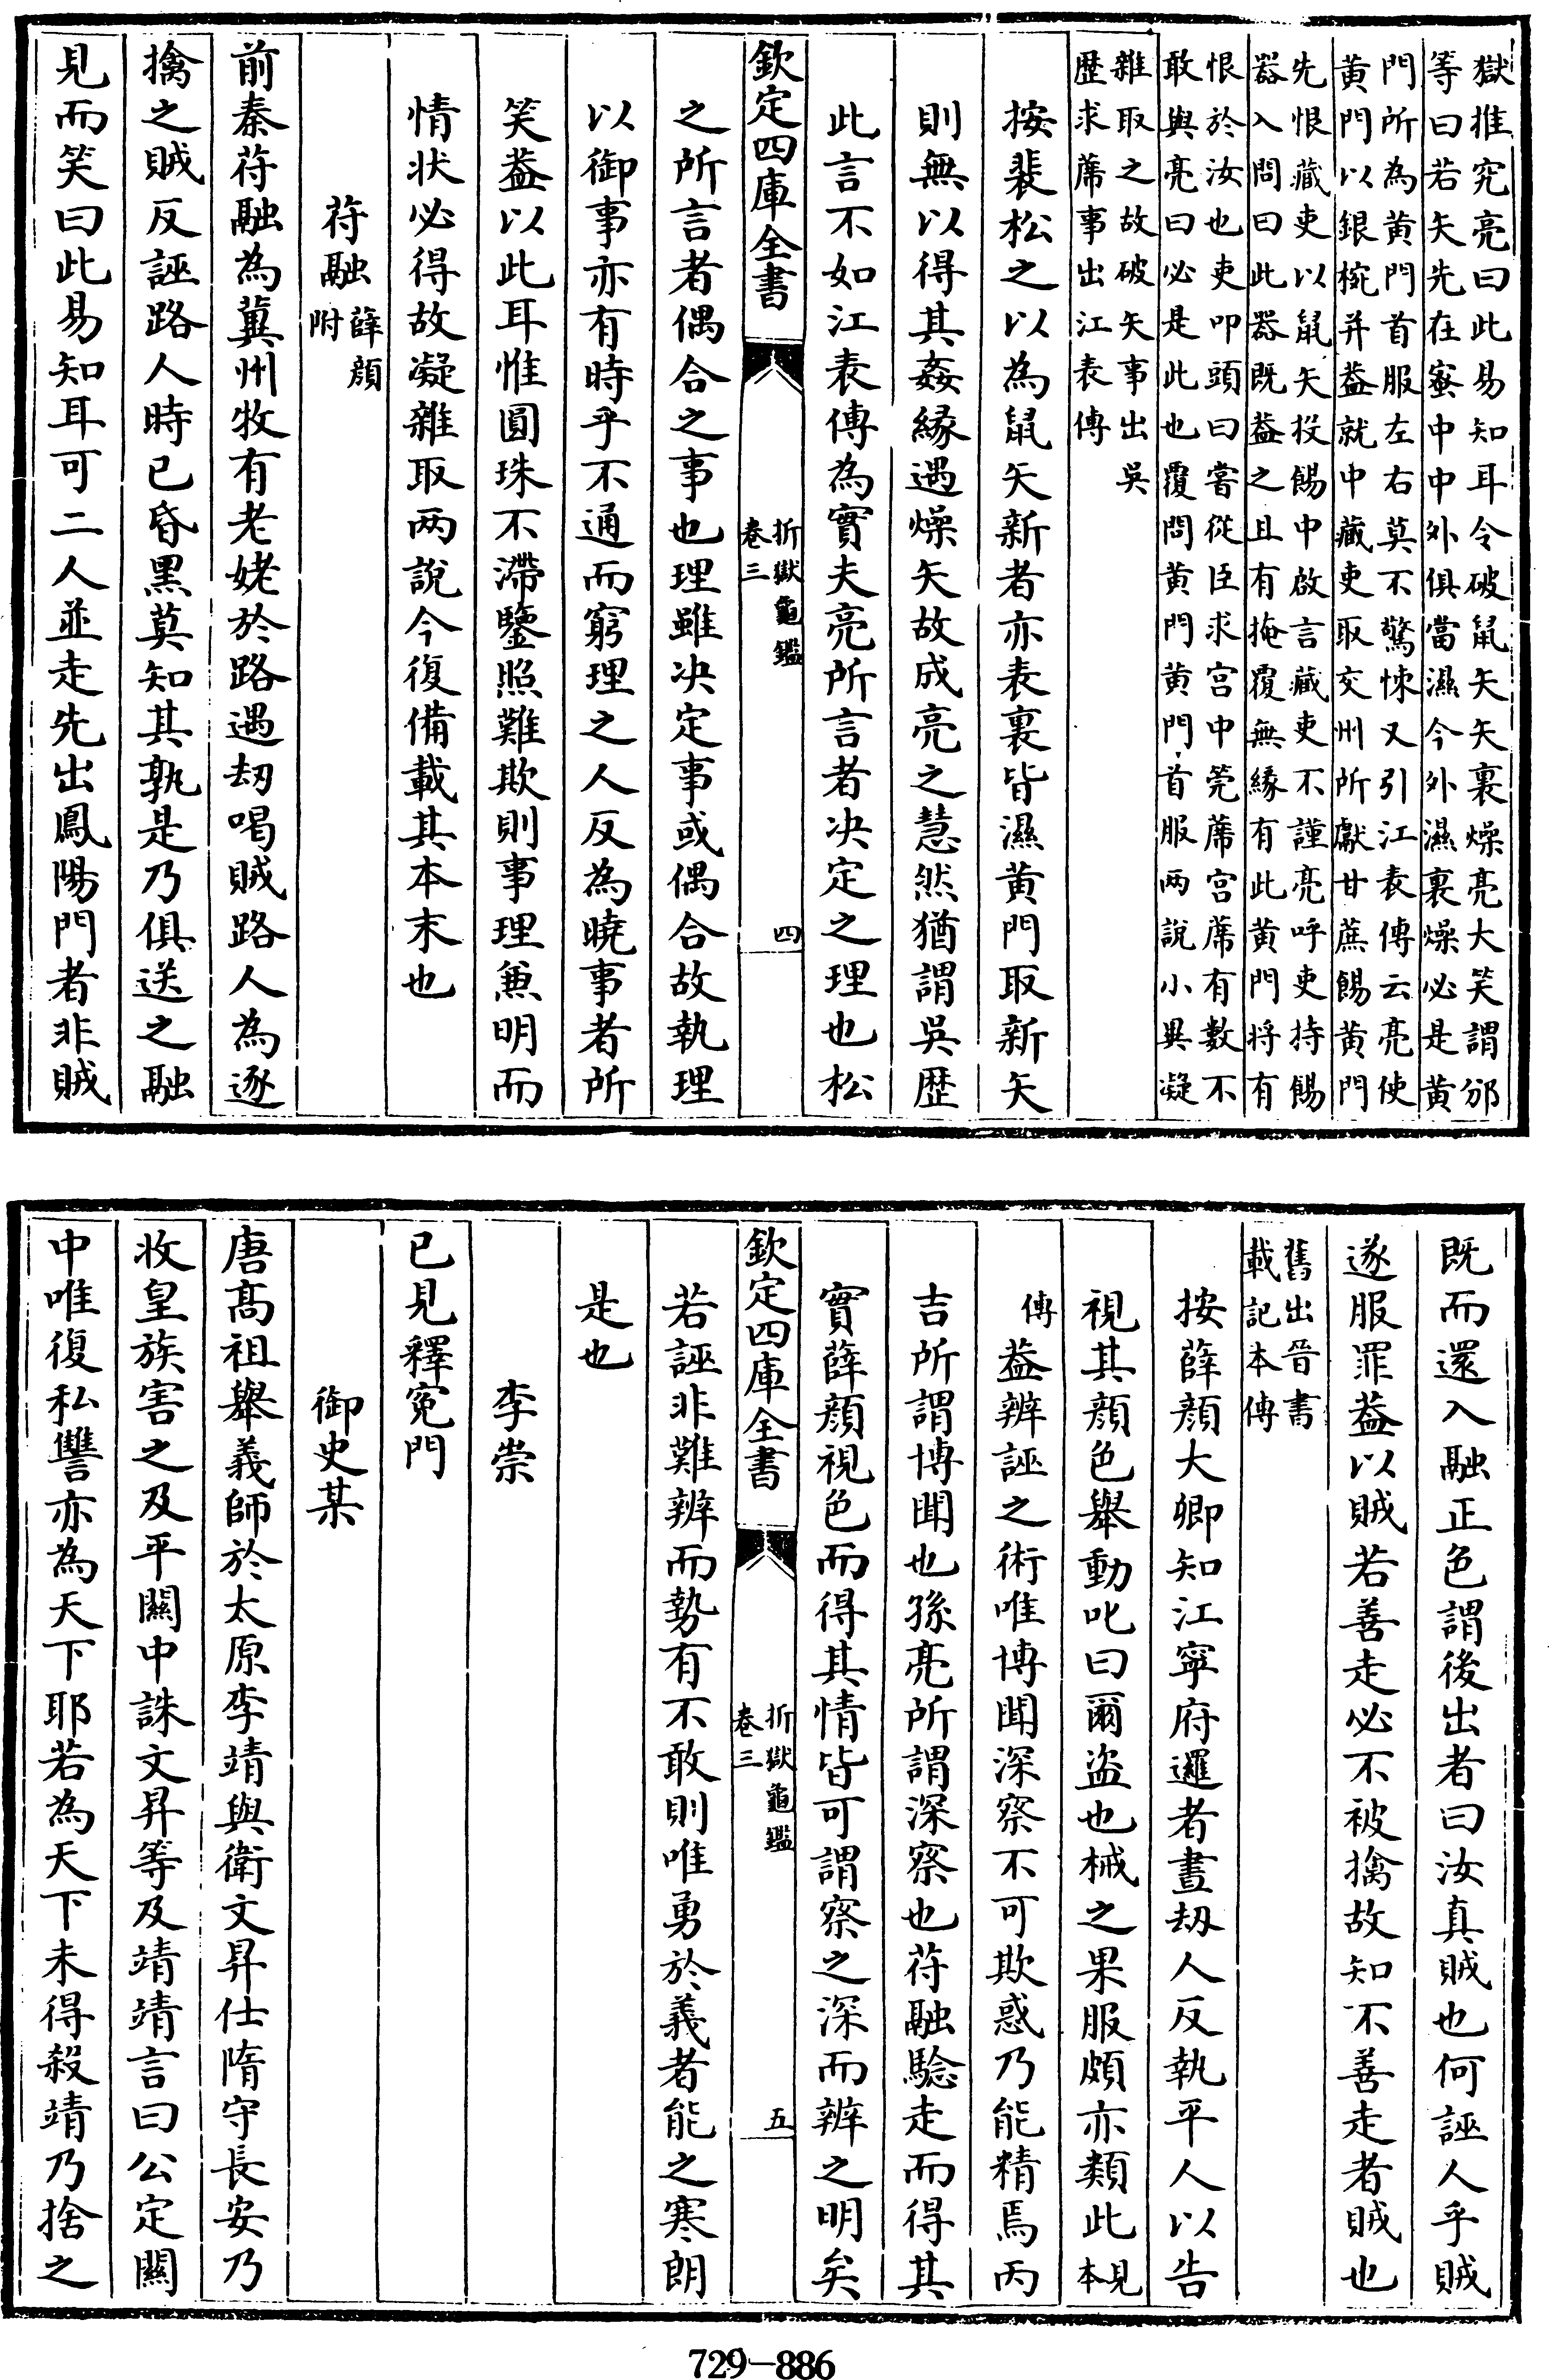 獄推究亮曰此易知耳令破鼠矢矢裏燥亮大笑謂邠
等曰若矢先在蜜中中外俱當濕今外濕裏燥必是黄
門所為黄門首服左右莫不驚悚又引江表傳云亮使
黄門以銀椀并葢就中藏吏取交州所獻甘蔗餳黄門
先恨藏吏以鼠矢投餳中啟言藏吏不謹亮呼吏持餳
器入問曰此器既葢之且有掩覆無緣有此黄門將有
恨於汝也吏叩頭曰嘗從臣求宫中莞席宫席有數不
敢與亮曰必是此也覆問黄門黄門首服兩說小異凝
雜取之故破矢事出吳
歷求席事出江表傳
按裴松之以為鼠矢新者亦表裏皆濕黄門取新矢
則無以得其姦緣遇燥矢故成亮之慧然猶謂吳歷
此言不如江表傳為實夫亮所言者决定之理也松
欽定四庫全書
折獄龜鑑
卷三
四
之所言者偶合之事也理雖决定事或偶合故執理
以御事亦有時乎不通而窮理之人反為曉事者所
笑葢以此耳惟圓珠不滯鑒照難欺則事理兼明而
情狀必得故凝雜取两說今復備載其本末也
苻融 薛顔
附
前秦苻融為冀州牧有老姥於路遇劫喝賊路人為逐
擒之賊反誣路人時已昏黑莫知其孰是乃俱送之融
見而笑曰此易知耳可二人並走先出鳳陽門者非賊
既而還入融正色謂後出者曰汝真賊也何誣人乎賊
遂服罪葢以賊若善走必不被擒故知不善走者賊也
舊出晉書
載記本傳
按薛顔大卿知江寧府邏者晝劫人反執平人以告
視其顔色舉動叱曰爾盗也械之果服頗亦類此見
本
傳葢辨誣之術唯博聞深察不可欺惑乃能精焉丙
吉所謂博聞也孫亮所謂深察也苻融騐走而得其
實薛顔視色而得其情皆可謂察之深而辨之明矣
欽定四庫全書
折獄龜鑑
卷三
五
若誣非難辨而勢有不敢則唯勇於義者能之寒朗
是也
李崇
已見釋寃門
御史某
唐髙祖舉義師於太原李靖與衛文昇仕隋守長安乃
收皇族害之及平關中誅文昇等及靖靖言曰公定關
中唯復私讐亦為天下耶若為天下未得殺靖乃捨之
729-886